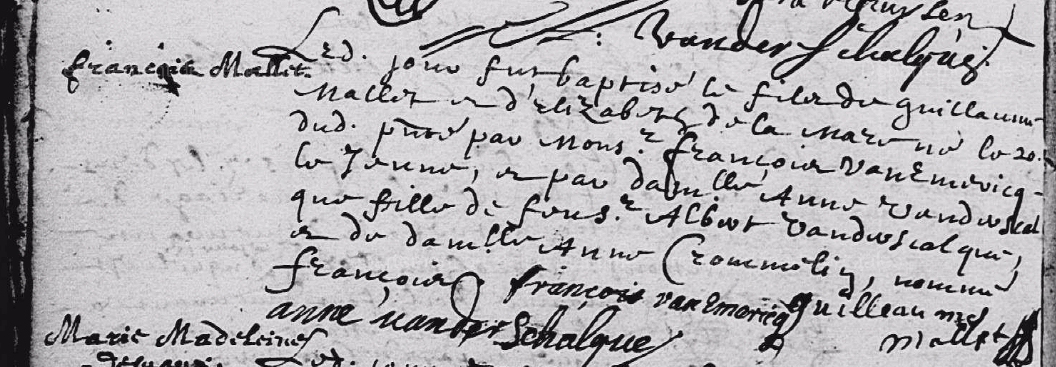 Vander Schalque
françois Mallet.
Led. jour fut baptisé le fils de guillaume
Mallet et d'Elizabeth de la Mare né le 20.
dud. pnté par Mons.r françois VanEmericq
le Jeune, et par damlle Anne Vanderscal
que fille de feu s.r Albert Vanderscalque,
et de damlle Anne Crommelin, nommé
françois. françois vanEmericq guilleaumes
anne vander Schalque mallet
Marie Madeleine
Led. jour